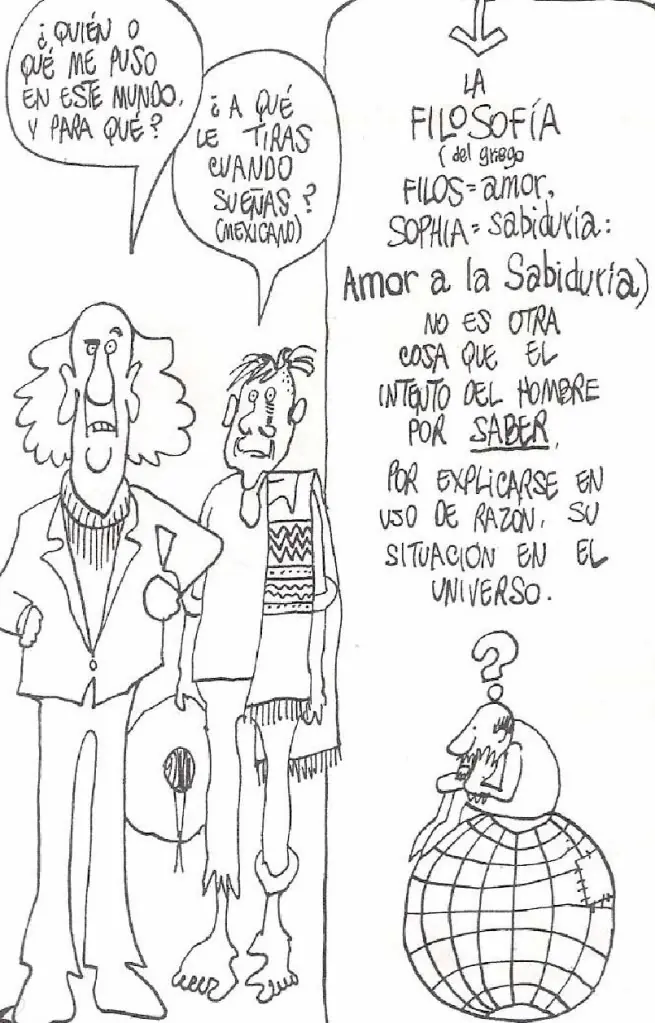 ¿QUIÉN O
QUÉ ME PUSO
EN ESTE MUNDO,
Y PARA QUÉ?
¿A QUÉ
LE TIRAS
CUANDO
SUEÑAS?
(MEXICANO)
LA
FILOSOFÍA
(del griego
FILOS=amor,
SOPHIA=sabiduría:
Amor a la Sabiduría)
NO ES OTRA
COSA QUE EL
INTENTO DEL HOMBRE
POR SABER,
POR EXPLICARSE EN
USO DE RAZÓN, SU
SITUACIÓN EN EL
UNIVERSO.
?